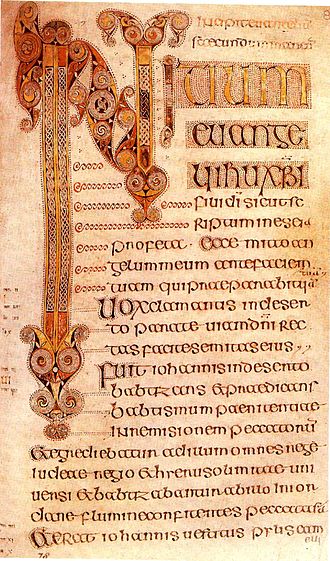 INITIUM
euange
lii ihu xpi
filii di sicut sc
riptum in eseia
profeta Ecce mitto an
gelum meum ante faciem
tuam qui praeparabit uiam
Uox clamantis in deser
to parate uiam dni rec
tas facite semitas eius
Fuit iohannis in deserto
babtizans et praedicans
babtismum paenitentiae
in remisionem peccatorū
et egrediebatur ad illum omnes
iudeae regio et hierusolimitae uni
uersi et babtizabantur ab illo in ior
dane flumine confitentes peccata sua
et erat iohannis uestitus pilis cam
eli